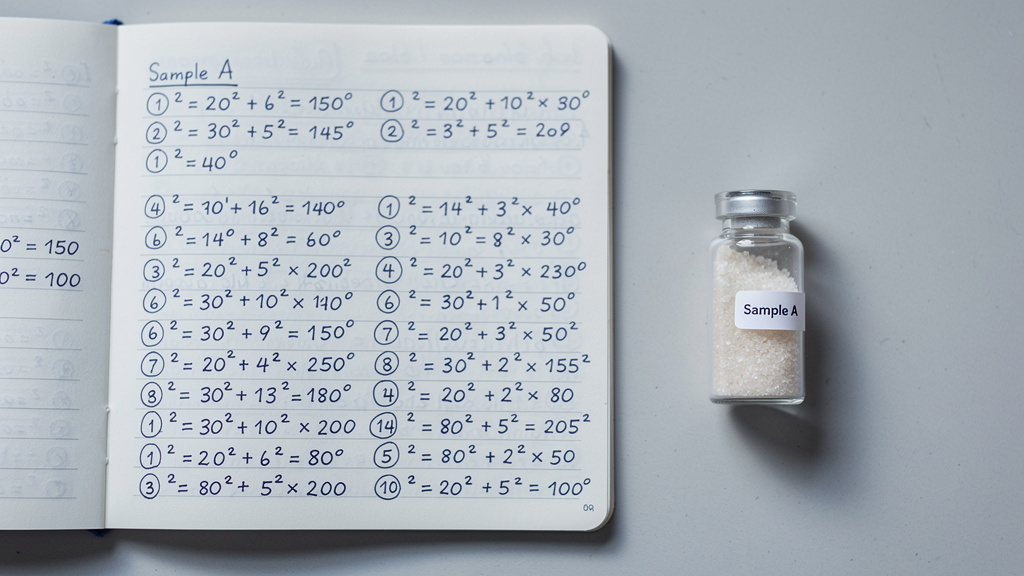 Sample A
① ² = 20² + 6² = 150°
② ² = 30² + 5² = 145°
① ² = 40°
④ ² = 10' + 16² = 140°
⑥ ² = 14° + 8² = 60°
③ ² = 20² + 5² × 200²
⑥ ² = 30² + 10² × 140°
⑥ ² = 30² + 9² = 150°
⑦ ² = 20² + 4² × 250°
⑧ ² = 30² + 13² = 180°
① ² = 30² + 10² × 200
① ² = 20² + 6² = 80°
③ ² = 80² + 5² × 200
① ² = 20² + 10² × 30°
② ² = 3² + 5² = 20
① ² = 14² + 3² × 40°
③ ² = 10² = 8² × 30°
④ ² = 20² + 3² × 230°
⑥ ² = 30² + 1² × 50°
⑦ ² = 20² + 3² × 50²
⑧ ² = 30² + 2² × 155²
④ ² = 20² + 2² × 80
⑭ ² = 80² + 5² = 205²
⑤ ² = 80² + 2² × 50
⑩ ² = 20² + 5² = 100°
0² = 150
0² = 100
Sample A